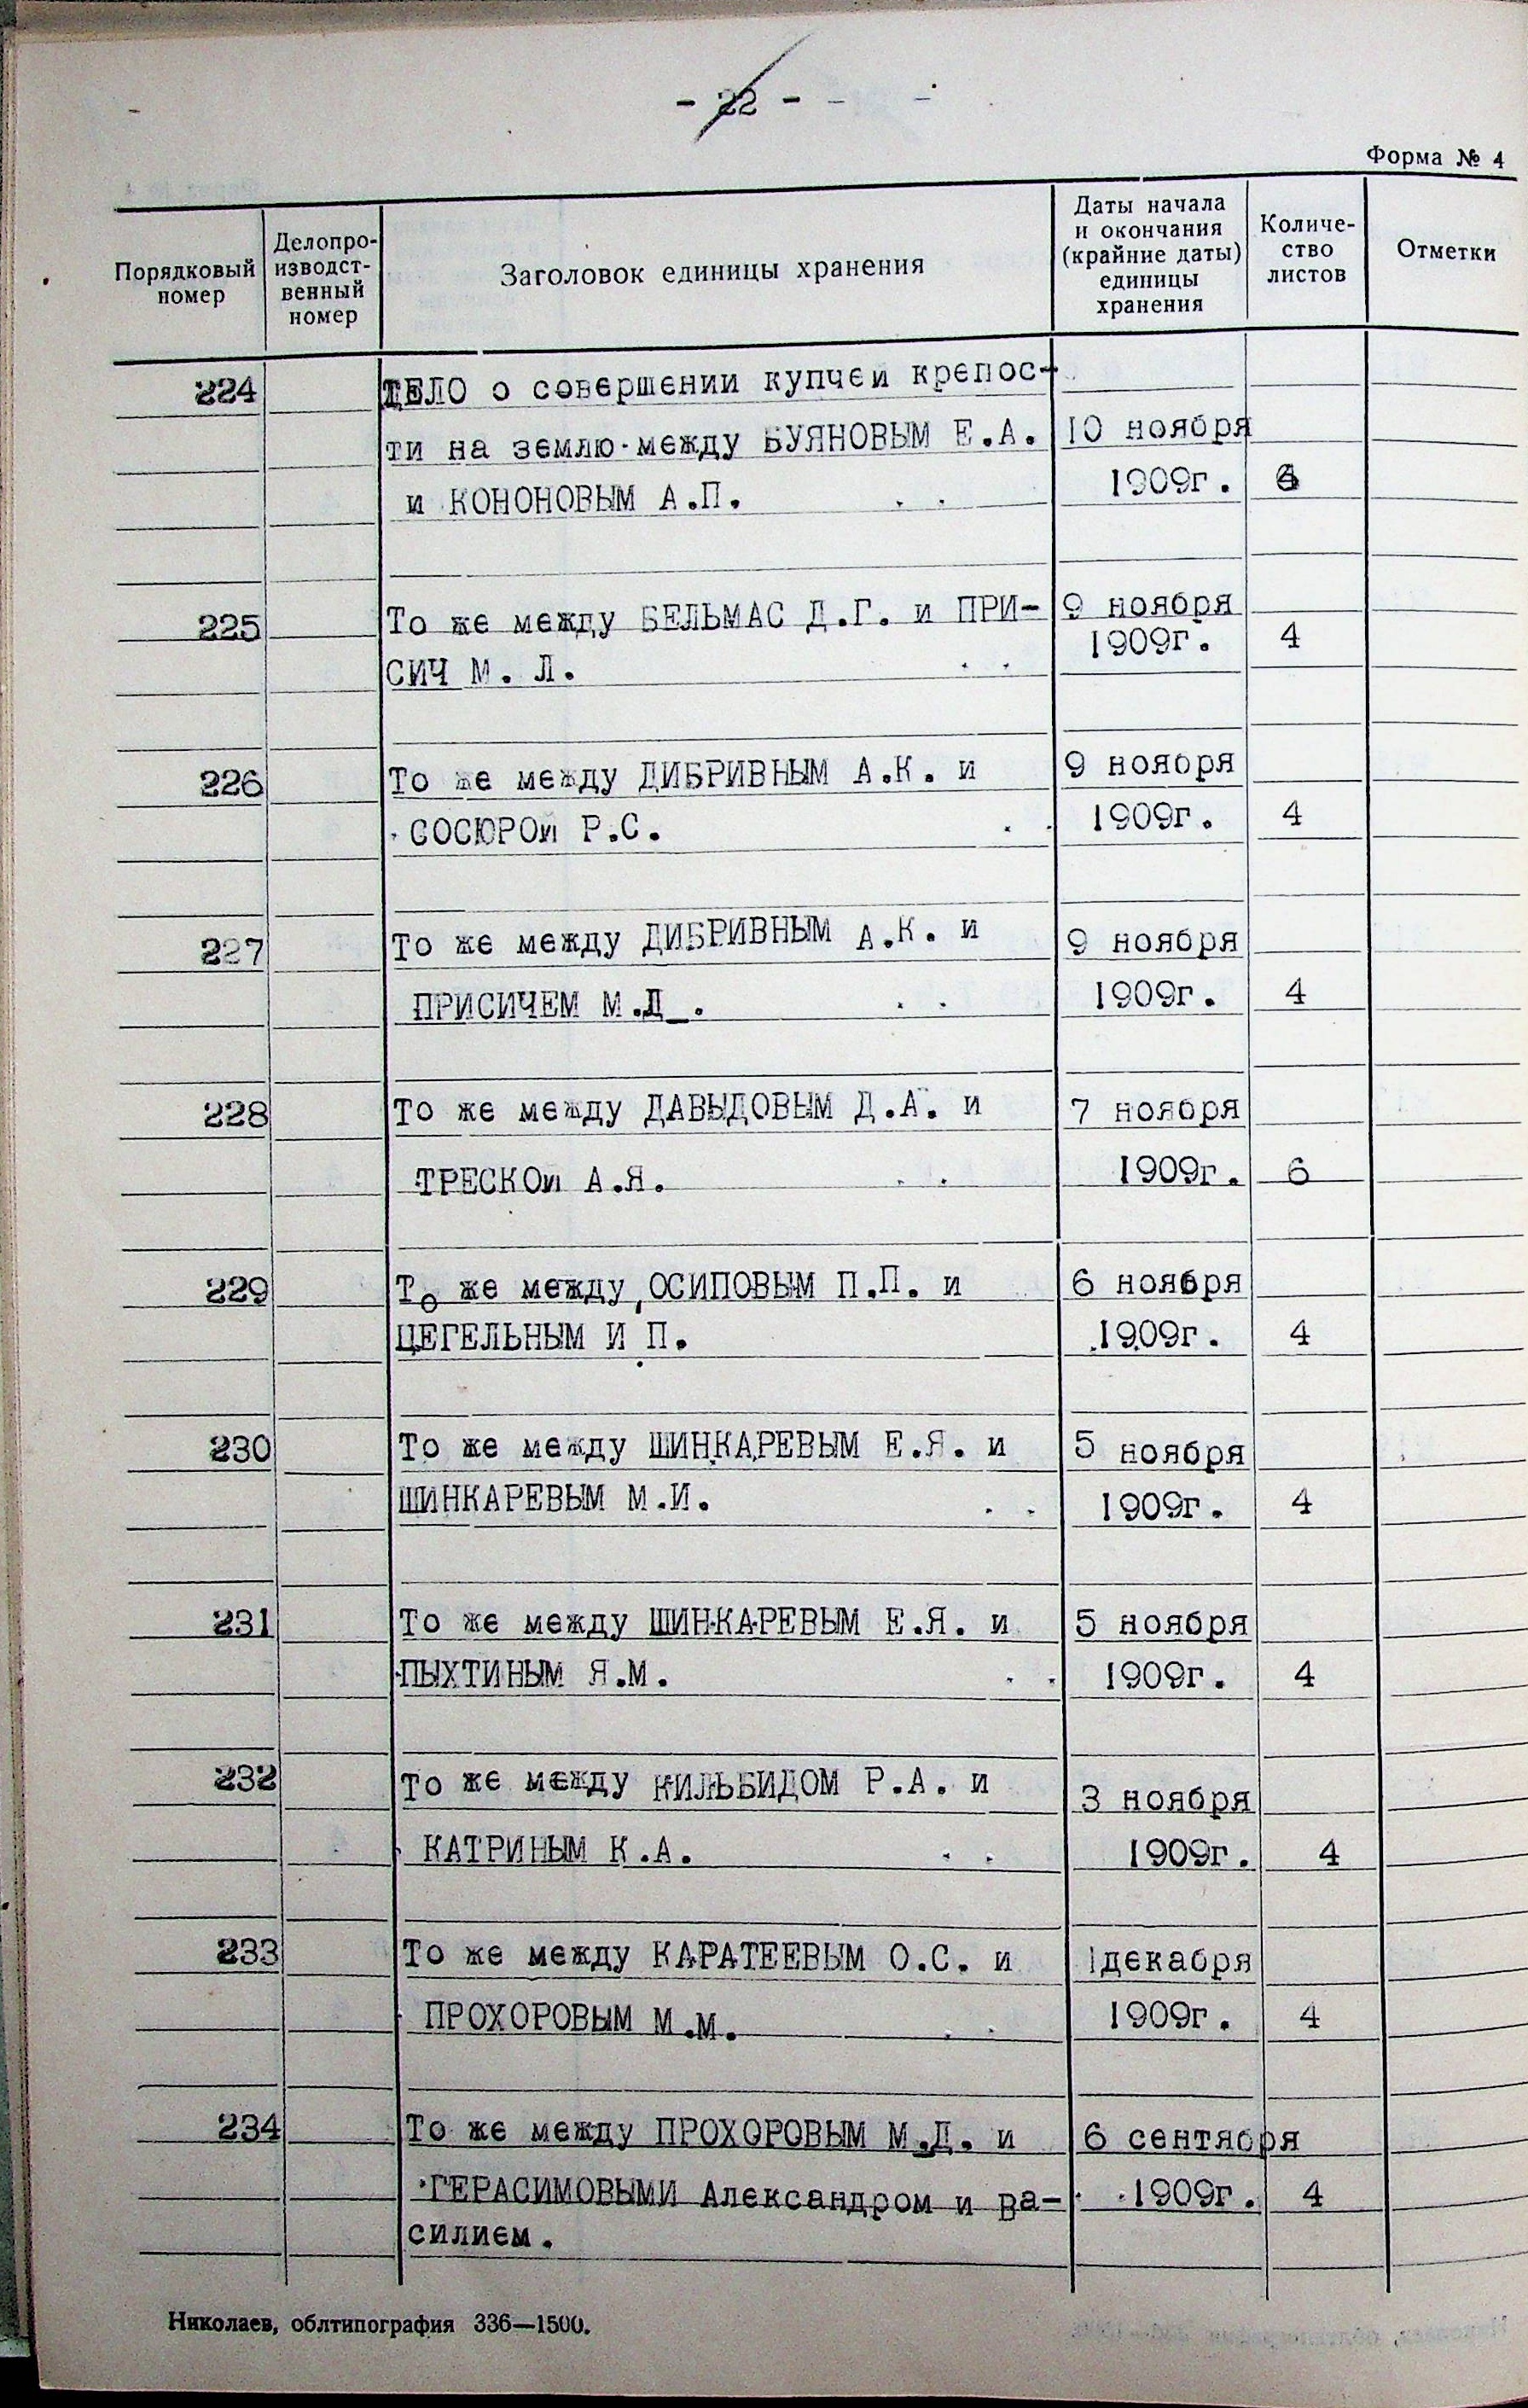 - 22 -
Форма № 4
Порядковый номер
Делопро-
изводст-
венный
номер
Заголовок единицы хранения
Даты начала
и окончания
(крайние даты)
единицы
хранения
Количе-
ство
листов
Отметки
224 ДЕЛО о совершении купчей крепос-
ти на землю между БУЯНОВЫМ Е.А. 10 ноября
и КОНОНОВЫМ А.П. 1909г.
225 То же между БЕЛЬМАС Д.Г. и ПРИ- 9 ноября
СИЧ М. Л. 1909г. 4
226 То же между ДИБРИВНЫМ А.К. и 9 ноября
СОСЮРОЙ Р.С. 1909г. 4
227 То же между ДИБРИВНЫМ А.К. и 9 ноября
ПРИСИЧЕМ М.Д. 1909г. 4
228 То же между ДАВЫДОВЫМ Д.А. и 7 ноября
ТРЕСКОЙ А.Я. 1909г. 6
229 То же между ОСИПОВЫМ П.П. и 6 ноября
ЦЕГЕЛЬНЫМ И П. 1909г. 4
230 То же между ШИНКАРЕВЫМ Е.Я. и 5 ноября
ШИНКАРЕВЫМ М.И. 1909г. 4
231 То же между ШИНКАРЕВЫМ Е.Я. и 5 ноября
ПЫХТИНЫМ Я.М. 1909г. 4
232 То же между КИЛЬБИДОМ Р.А. и 3 ноября
КАТРИНЫМ К.А. 1909г. 4
233 То же между КАРАТЕЕВЫМ О.С. и 1декабря
ПРОХОРОВЫМ М.М. 1909г. 4
234 То же между ПРОХОРОВЫМ М.Д. и 6 сентября
ГЕРАСИМОВЫМИ Александром и Ва- 1909г. 4
силием.
Николаев, облтипография 336—1500.